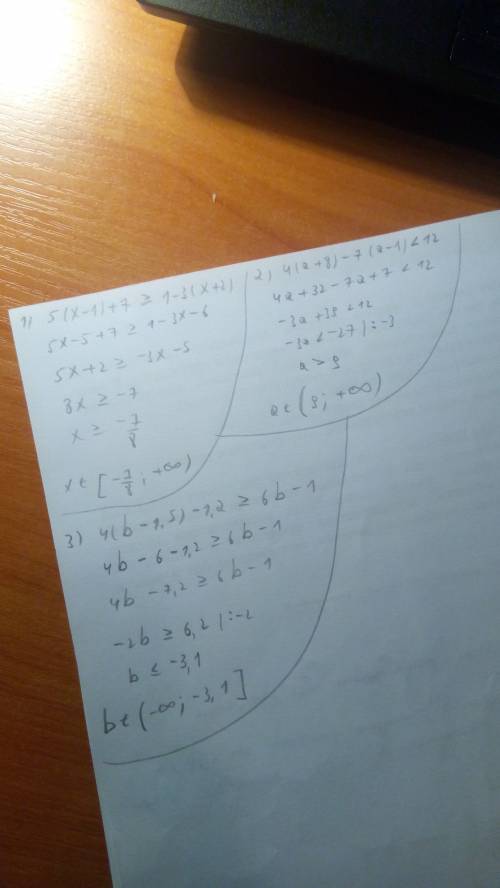 1) 5(x-1)+7 ≥ 1-3(x+2)
5x-5+7 ≥ 1-3x-6
5x+2 ≥ -3x-5
8x ≥ -7
x ≥ -7/8
x ∈ [-7/8; +∞)
2) 4(a+8)-7(a-1)<12
4a+32-7a+7<12
-3a+39<12
-3a<-27 |:-3
a>9
a ∈ (9; +∞)
3) 4(b-1,5)-1,2 ≥ 6b-1
4b-6-1,2 ≥ 6b-1
4b-7,2 ≥ 6b-1
-2b ≥ 6,2 |:-2
b ≤ -3,1
b ∈ (-∞; -3,1]